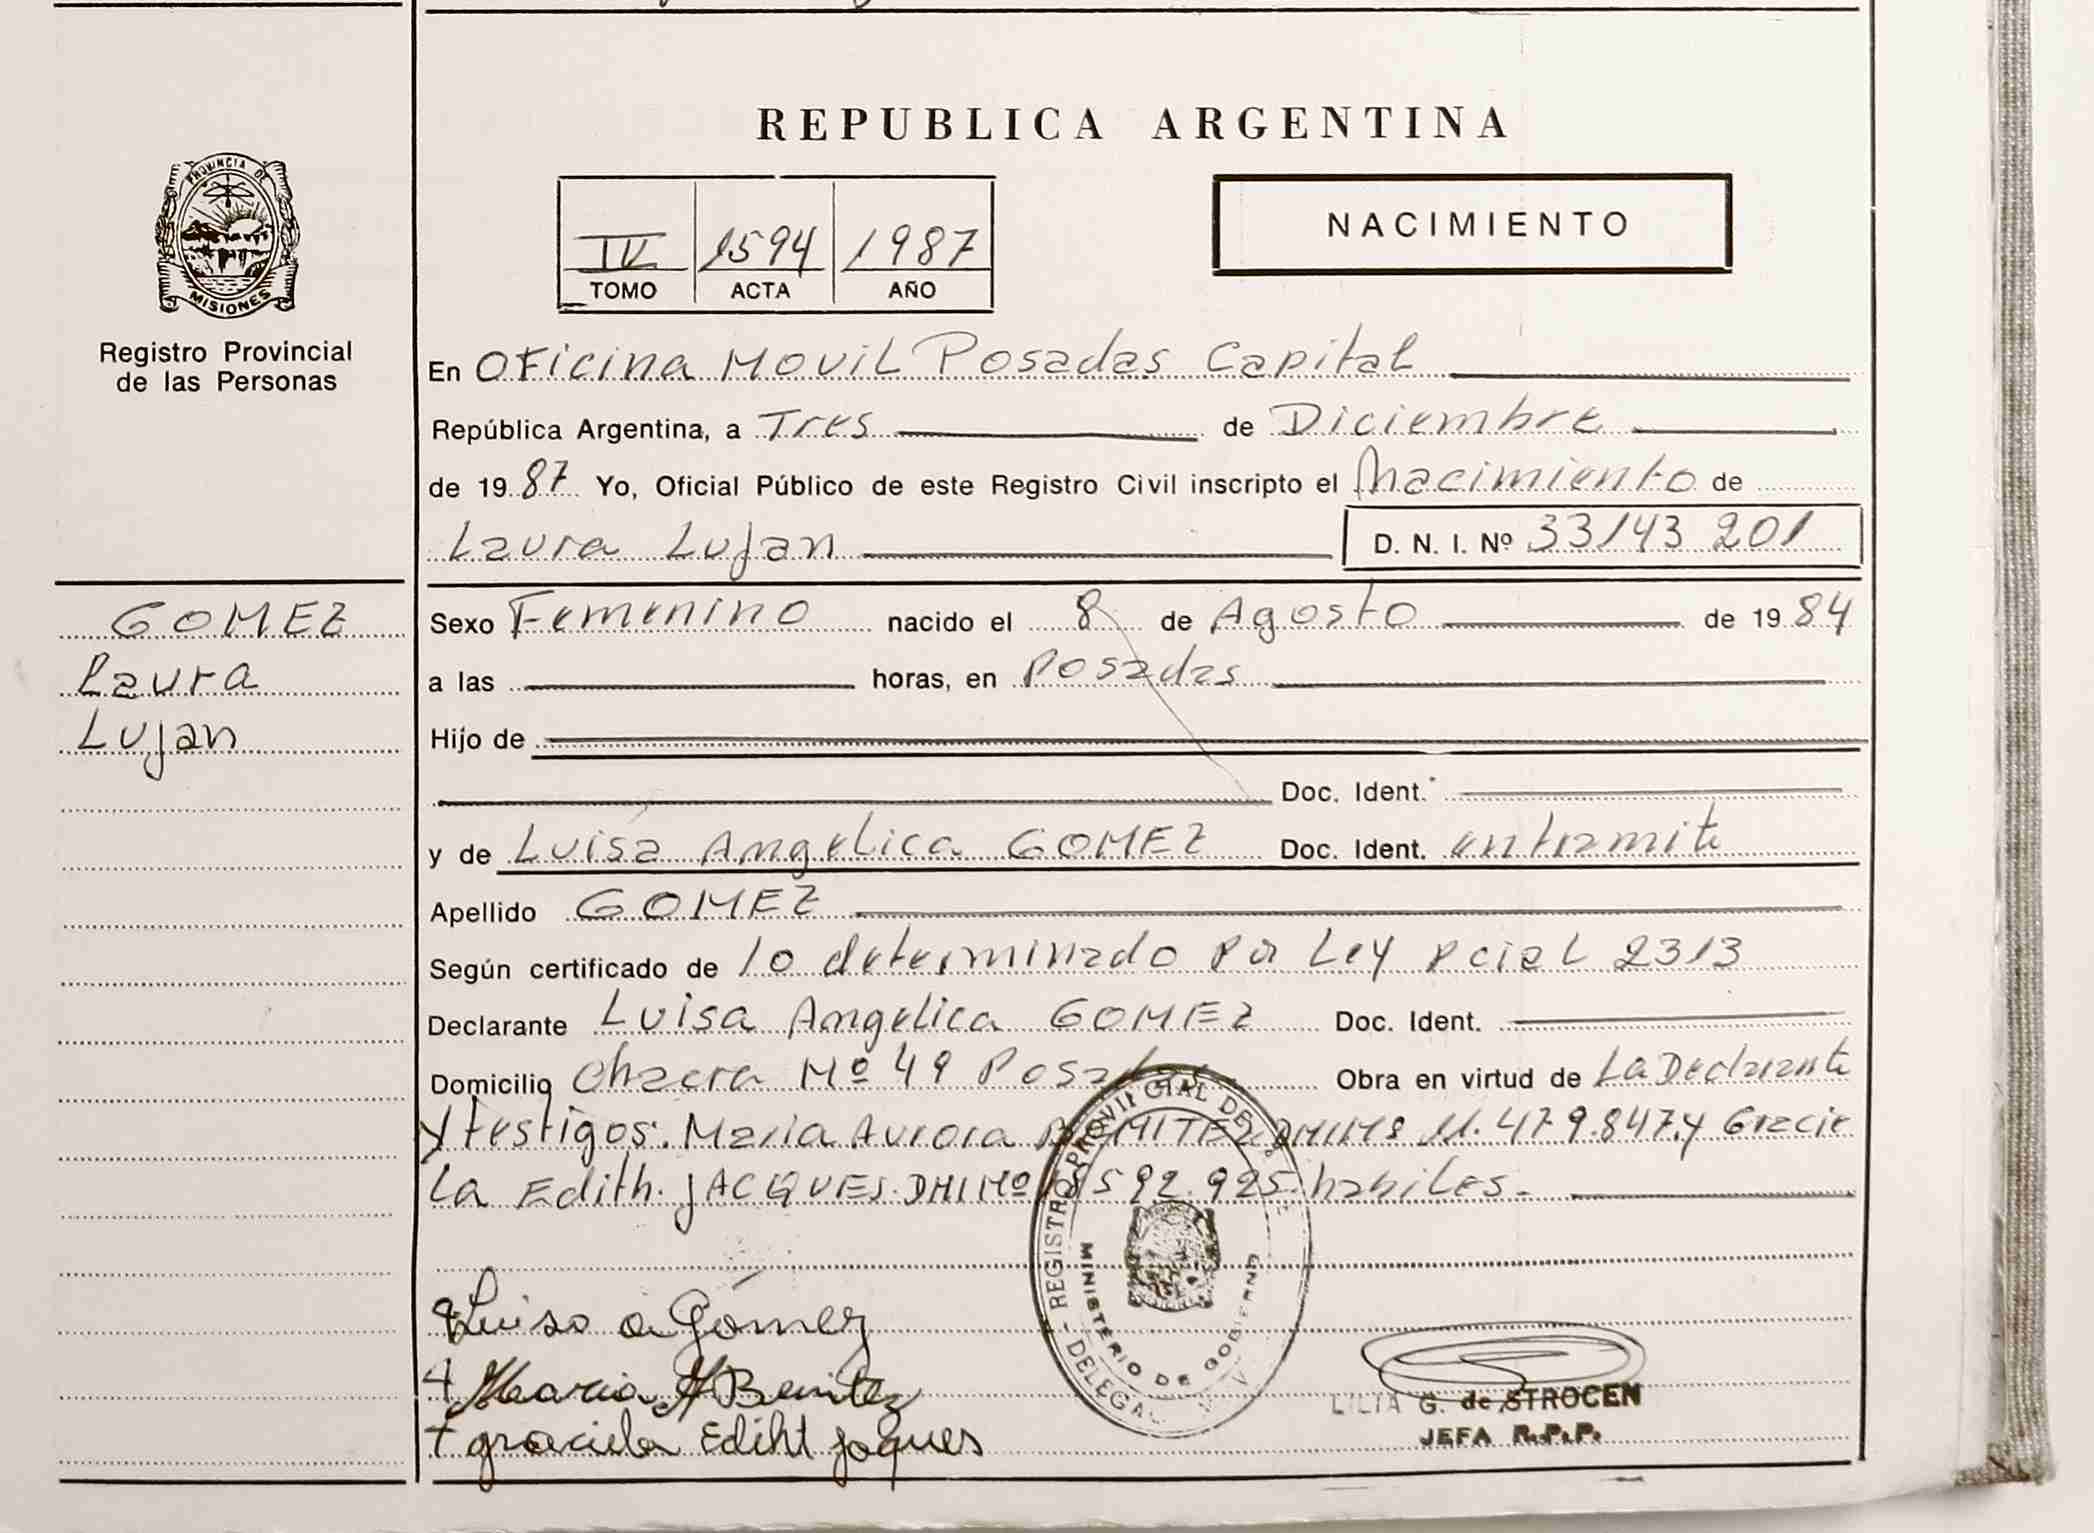 REPUBLICA ARGENTINA
PROVINCIA DE MISIONES
Registro Provincial
de las Personas
NACIMIENTO
IV 1594 1987
TOMO ACTA AÑO
En Oficina Movil Posadas Capital
República Argentina, a Tres de Diciembre
de 1987 Yo, Oficial Público de este Registro Civil inscripto el Nacimiento de
Laura Lujan D. N. I. Nº 33143 201
GOMEZ
Laura
Lujan
Sexo Femenino nacido el 8 de Agosto de 1984
a las horas, en Posadas
Hijo de
Doc. Ident.
y de Luisa Angelica GOMEZ Doc. Ident. entramite
Apellido GOMEZ
Según certificado de lo determinado por Ley pcial 2313
Declarante Luisa Angelica GOMEZ Doc. Ident.
Domicilio Chacra Nº 49 Posadas Obra en virtud de La Declarante
y testigos: Maria Aurora 479.847 y Gracie
la Edith JACQUES DNI Nº 592.925 habiles.
REGISTRO PROVINCIAL DE
MINISTERIO DE GOBIERNO
Luisa a Gómez
Maria A Benitez
graciela Ediht jaques
LILIA G. de STROCEN
JEFA R.P.P.